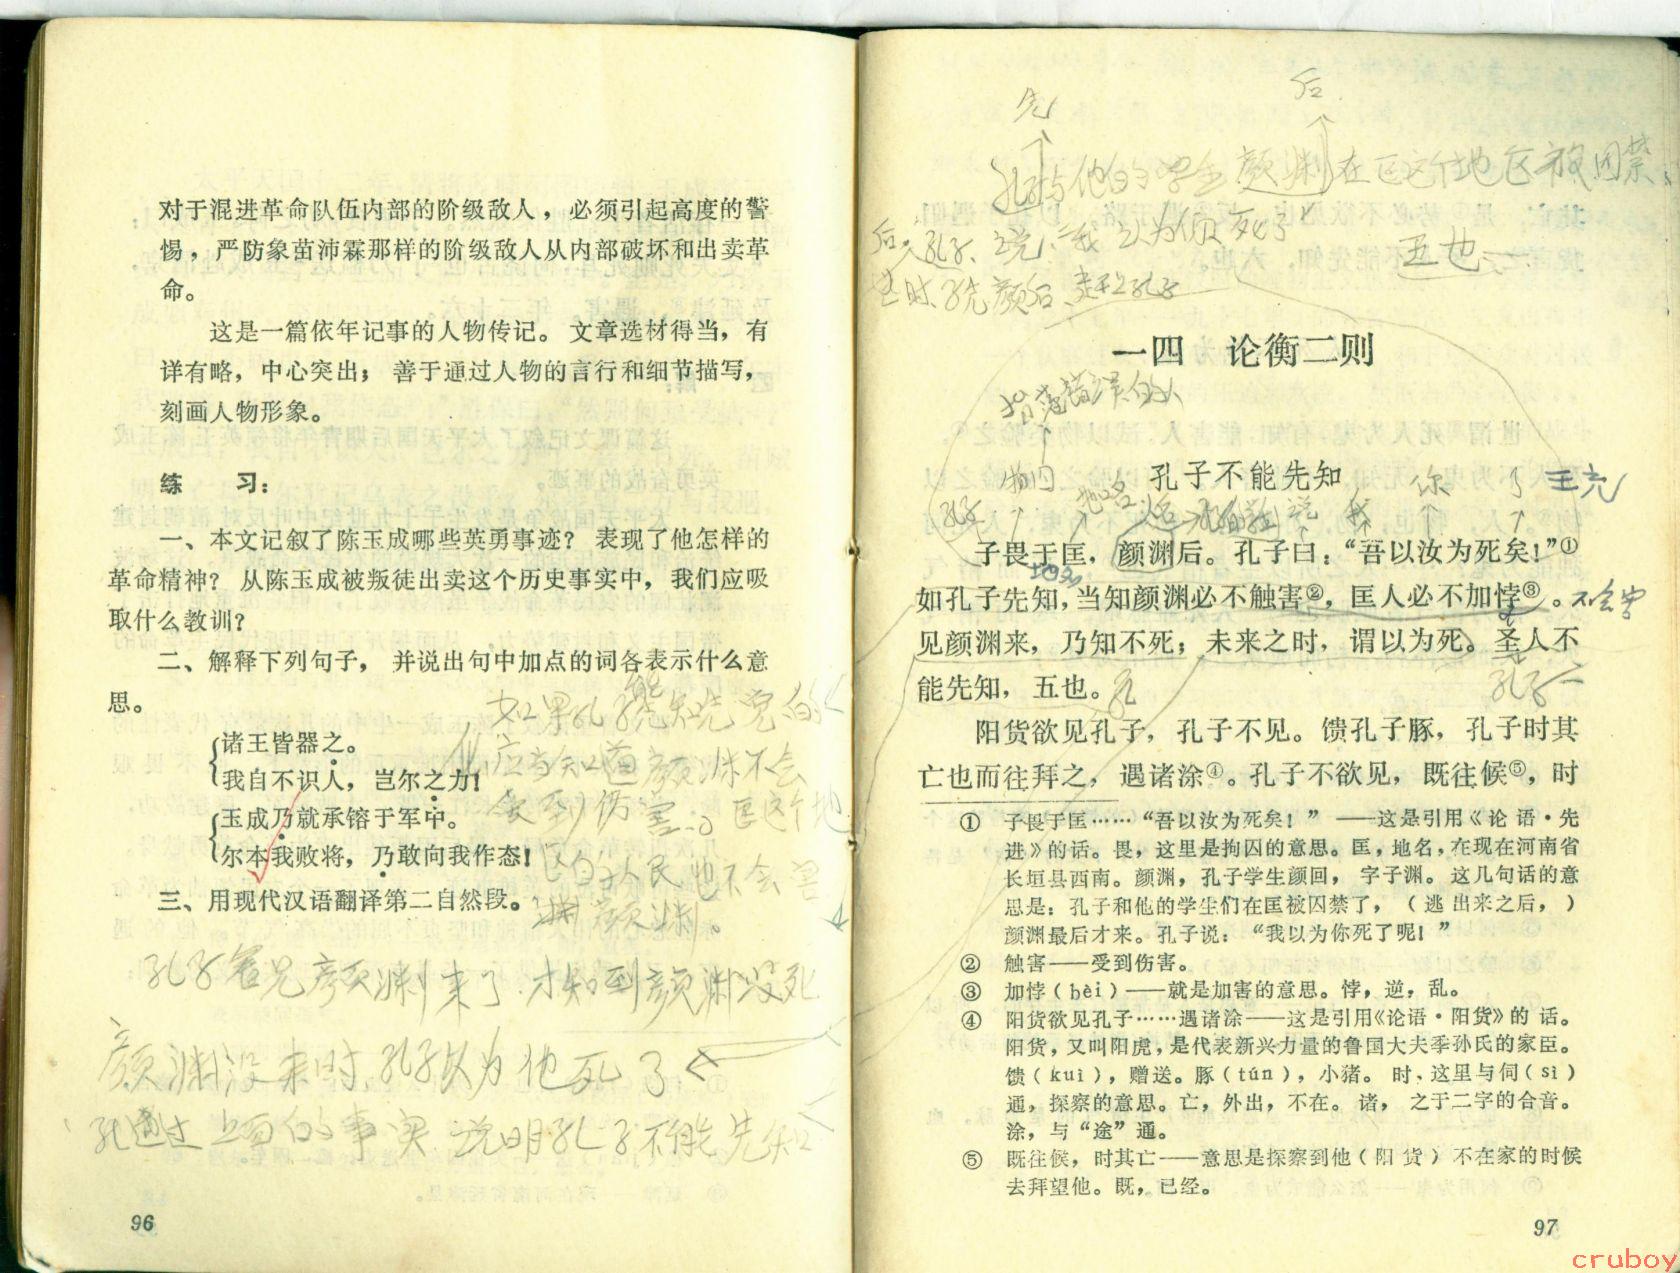 对于混进革命队伍内部的阶级敌人，必须引起高度的警
惕，严防象苗沛霖那样的阶级敌人从内部破坏和出卖革
命。
这是一篇依年记事的人物传记。文章选材得当，有
详有略，中心突出；善于通过人物的言行和细节描写，
刻画人物形象。
练　习：
一、本文记叙了陈玉成哪些英勇事迹？表现了他怎样的
革命精神？从陈玉成被叛徒出卖这个历史事实中，我们应吸
取什么教训？
二、解释下列句子，并说出句中加点的词各表示什么意
思。
诸王皆器之。
我自不识人，岂尔之力！
玉成乃就承镕于军中。
尔本我败将，乃敢向我作态！
三、用现代汉语翻译第二自然段。
如果孔子能先知先觉的
他应当知道颜渊不会
受到伤害 匡这个地
区的人民也不会害
颜渊。
孔子看见颜渊来了才知到颜渊没死
颜渊没来时孔子以为他死了
孔通过上面的事实说明孔子不能先知
96
先
后
孔子与他的学生颜渊在匡这个地区被囚禁
后 孔子 说 我以为你死了
五也
一四　论衡二则
孔子不能先知
王充
孔子
地名
说
我
你
了
子畏于匡，颜渊后。孔子曰：“吾以汝为死矣！”①
如孔子先知，当知颜渊必不触害②，匡人必不加悖③。
不会害
见颜渊来，乃知不死；未来之时，谓以为死。圣人不
能先知，五也。
孔子
阳货欲见孔子，孔子不见。馈孔子豚，孔子时其
亡也而往拜之，遇诸涂④。孔子不欲见，既往候⑤，时
① 子畏于匡……“吾以汝为死矣！”——这是引用《论语·先
进》的话。畏，这里是拘囚的意思。匡，地名，在现在河南省
长垣县西南。颜渊，孔子学生颜回，字子渊。这几句话的意
思是：孔子和他的学生们在匡被囚禁了，（逃出来之后，）
颜渊最后才来。孔子说：“我以为你死了呢！”
② 触害——受到伤害。
③ 加悖（bèi）——就是加害的意思。悖，逆，乱。
④ 阳货欲见孔子……遇诸涂——这是引用《论语·阳货》的话。
阳货，又叫阳虎，是代表新兴力量的鲁国大夫季孙氏的家臣。
馈（kuì），赠送。豚（tún），小猪。时，这里与伺（sì）
通，探察的意思。亡，外出，不在。诸，之于二字的合音。
涂，与“途”通。
⑤ 既往候，时其亡——意思是探察到他（阳货）不在家的时候
去拜望他。既，已经。
97
cruboy